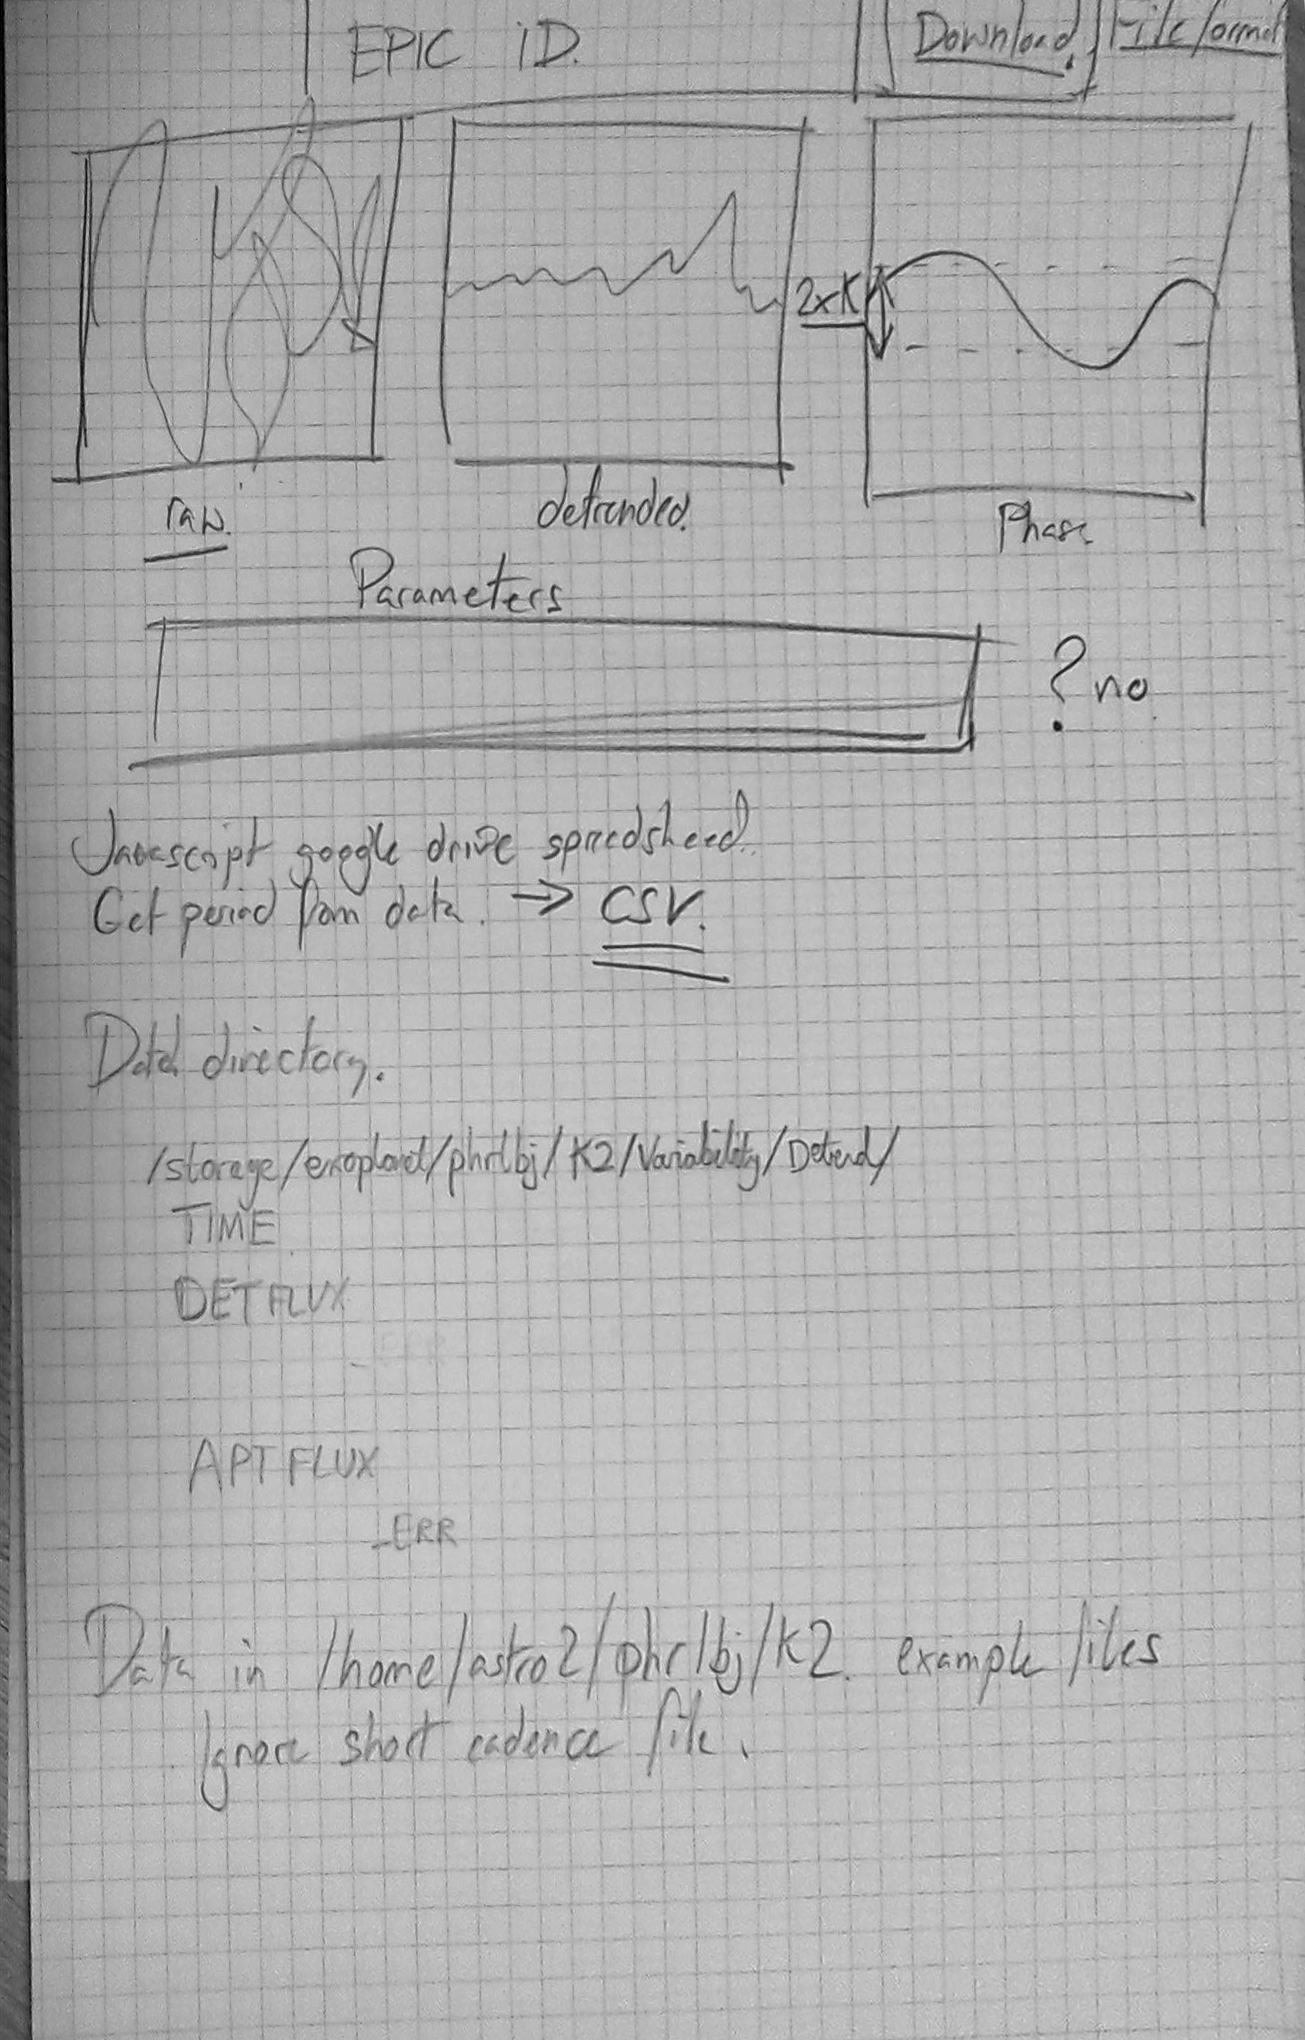 EPIC ID.
Download. File format
2xK
raw.
detrended.
Phase
Parameters
? no.
Javascript google drive spreedsheed.
Get period from data. → CSV.
Data directory.
/storage/exoplanet/phrlbj/K2/Variability/Detrend/
TIME
DETFLUX
_ERR
APTFLUX
_ERR
Data in /home/astro2/phrlbj/K2. example files
Ignore short cadence file.